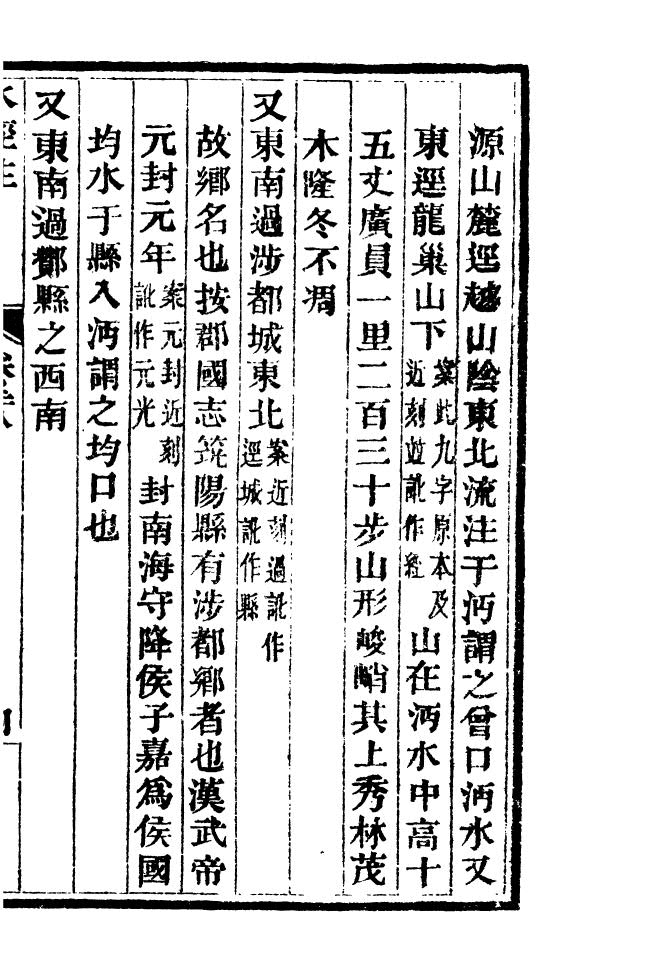 源山麓逕越山陰東北流注于沔謂之曾口沔水又
東逕龍巢山下案此九字原本及近刻並訛作經山在沔水中高十
五丈廣員一里二百三十步山形峻峭其上秀林茂
木隆冬不凋
又東南過涉都城東北案近刻過訛作逕城訛作縣
故鄉名也按郡國志筑陽縣有涉都鄉者也漢武帝
元封元年案元封近刻訛作元光封南海守降侯子嘉爲侯國
均水于縣入沔謂之均口也
又東南過酇縣之西南
水經注